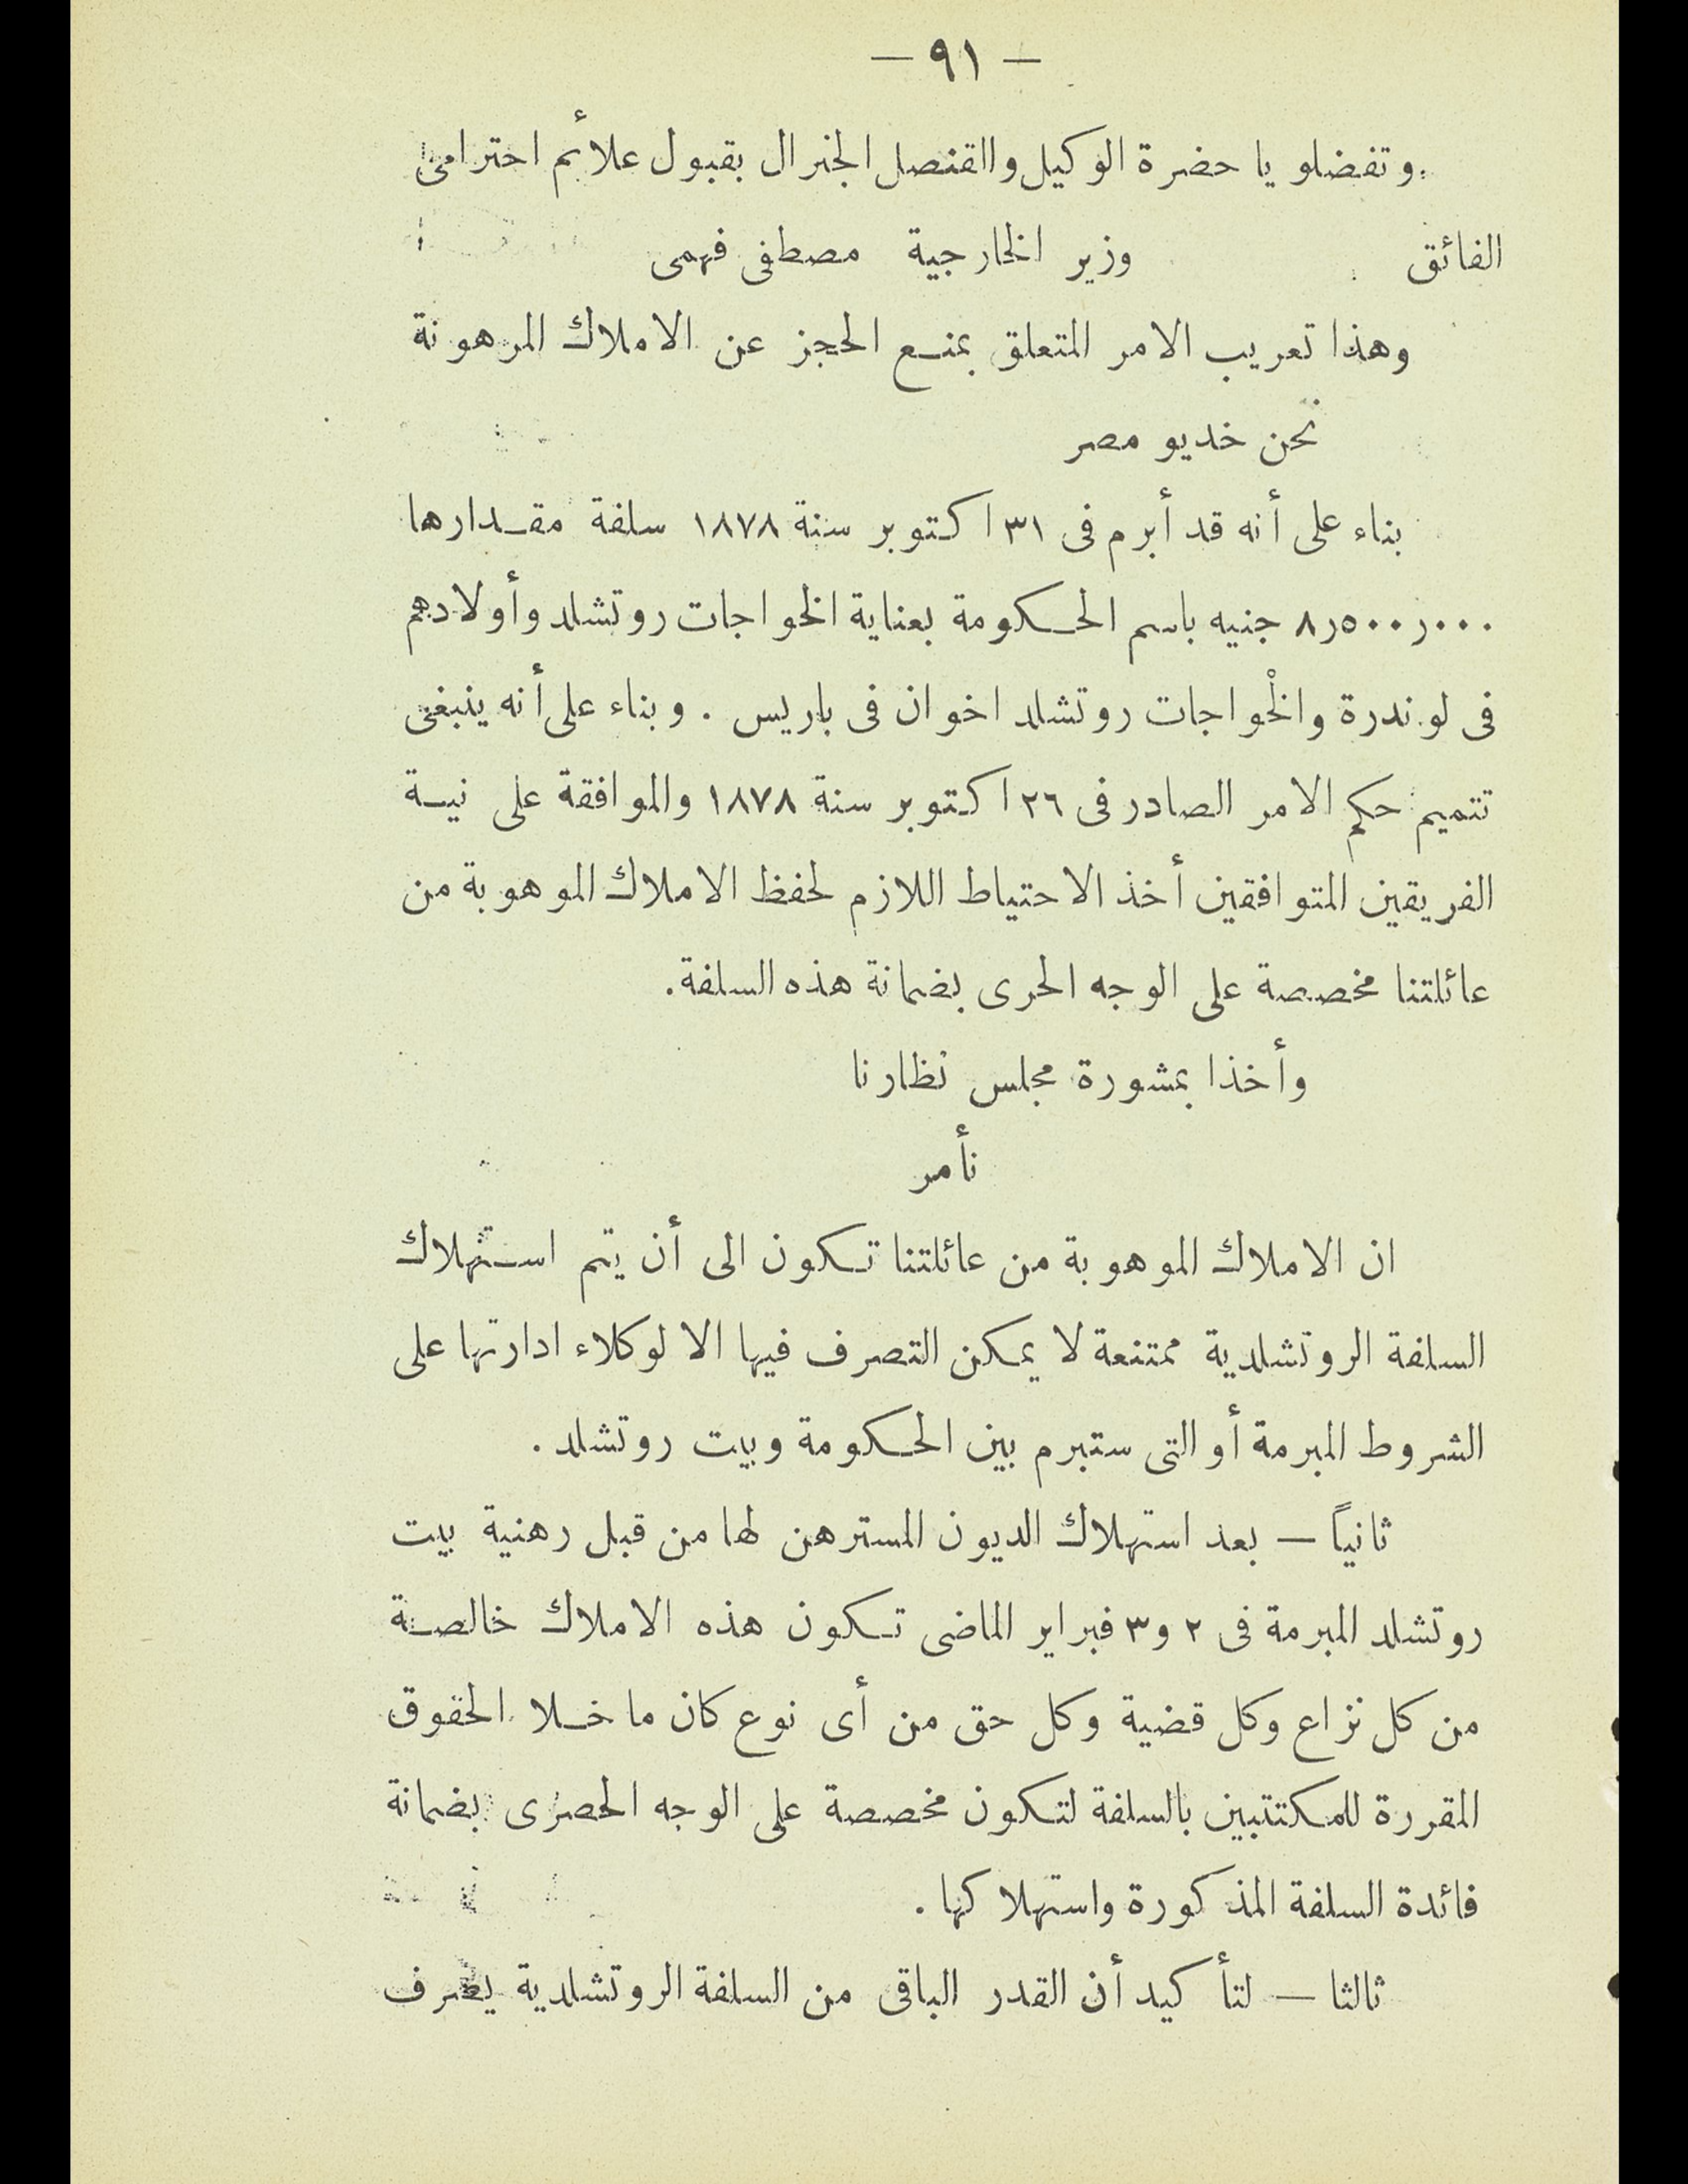 — ٩١ —
وتفضلو يا حضرة الوكيل واالقنصل الجنرال بقبول علائم احترامى
الفائق وزير الخارجية مصطفى فهمى
وهذا تعريب الامر المتعلق بمنع الحجز عن الاملاك المرهونة
نحن خديو مصر
بناء على أنه قد أبرم فى ٣١ اكتوبر سنة ١٨٧٨ سلفة مقدارها
٨٫٥٠٠٫٠٠٠ جنيه باسم الحكومة بعناية الخواجات روتشلد وأولادهم
فى لوندرة والخواجات روتشلد اخوان فى باريس . وبناء على أنه ينبغى
تتميم حكم الامر الصادر فى ٢٦ اكتوبر سنة ١٨٧٨ والموافقة على نية
الفريقين المتوافقين أخذ الاحتياط اللازم لحفظ الاملاك الموهوبة من
عائلتنا مخصصة على الوجه الحرى بضمانة هذه السلفة .
وأخذا بمشورة مجلس نظارنا
نأمر
ان الاملاك الموهوبة من عائلتنا تكون الى أن يتم استهلاك
السلفة الروتشلدية ممتنعة لا يمكن التصرف فيها الا لوكلاء ادارتها على
الشروط المبرمة أو التى ستبرم بين الحكومة وبيت روتشلد .
ثانياً — بعد استهلاك الديون المسترهن لها من قبل رهنية بيت
روتشلد المبرمة فى ٢ و٣ فبراير الماضى تكون هذه الاملاك خالصة
من كل نزاع وكل قضية وكل حق من أى نوع كان ما خلا الحقوق
المقررة للمكتتبين بالسلفة لتكون مخصصة على الوجه الحصرى بضمانة
فائدة السلفة المذكورة واستهلاكها .
ثالثا — لتأكيد أن القدر الباقى من السلفة الروتشلدية يصرف